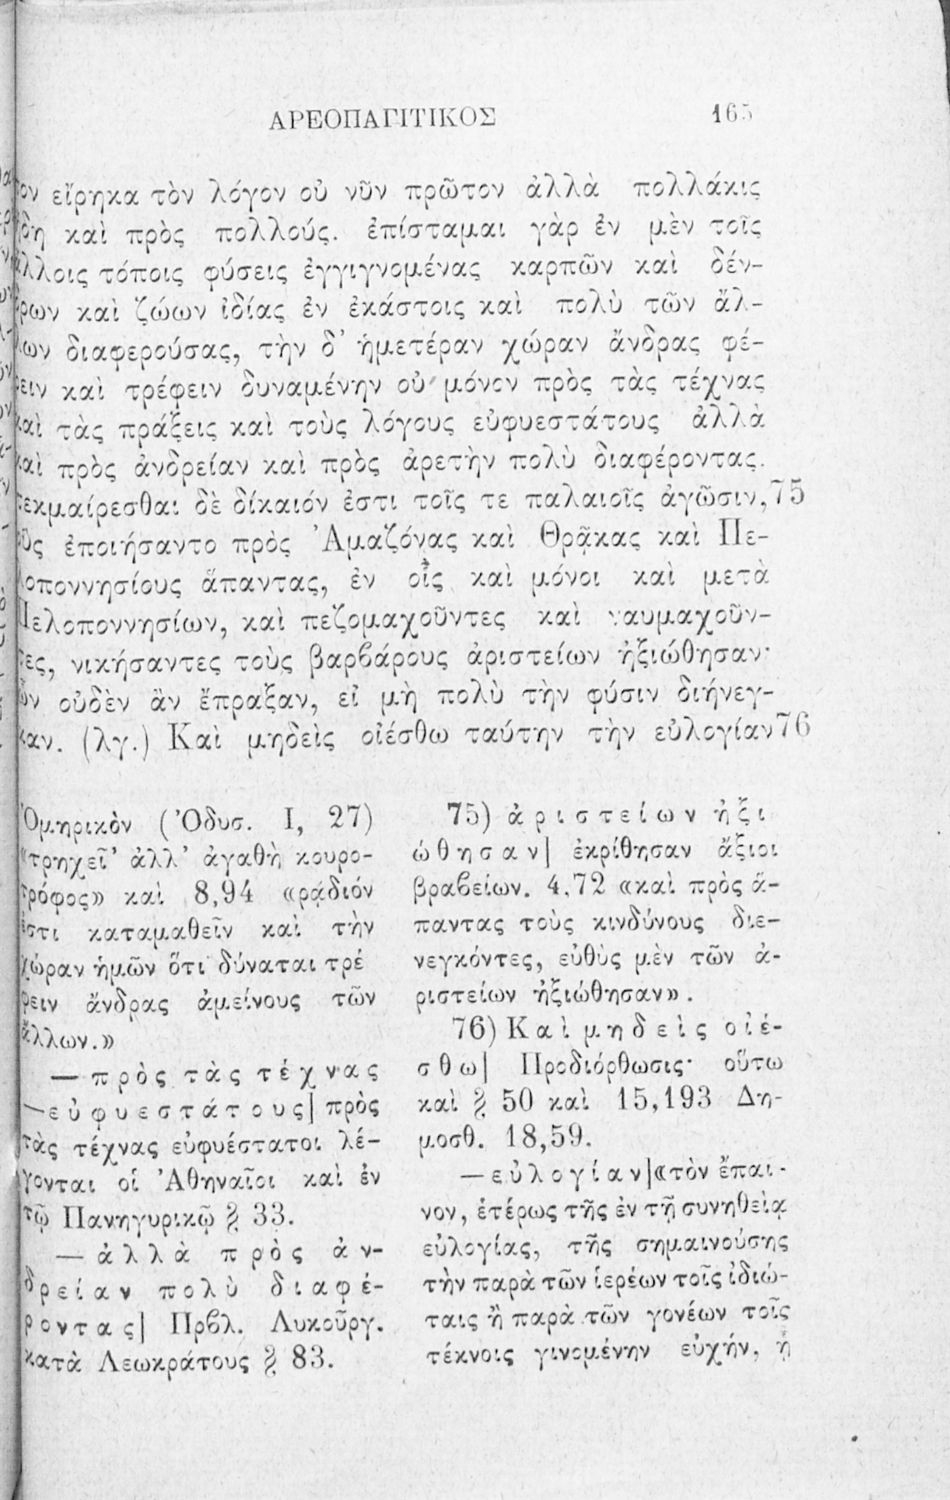 ΑΡΕΟΠΑΓΙΤΙΚΟΣ 165
εἴρηκα τὸν λόγον οὐ νῦν πρῶτον ἀλλὰ πολλάκις
καὶ πρὸς πολλούς. ἐπίσταμαι γὰρ ἐν μὲν τοῖς
ἄλλοις τόποις φύσεις ἐγγιγνομένας καρπῶν καὶ δέν-
δρων καὶ ζώων ἰδίας ἐν ἑκάστοις καὶ πολὺ τῶν ἄλ-
λων διαφερούσας, τὴν δ' ἡμετέραν χώραν ἄνδρας φέ-
ρειν καὶ τρέφειν δυναμένην οὐ μόνον πρὸς τὰς τέχνας
καὶ τὰς πράξεις καὶ τοὺς λόγους εὐφυεστάτους ἀλλὰ
καὶ πρὸς ἀνδρείαν καὶ πρὸς ἀρετὴν πολὺ διαφέροντας.
τεκμαίρεσθαι δὲ δίκαιόν ἐστι τοῖς τε παλαιοῖς ἀγῶσιν, 75
οὓς ἐποιήσαντο πρὸς Ἀμαζόνας καὶ Θρᾷκας καὶ Πε-
λοποννησίους ἅπαντας, ἐν οἷς καὶ μόνοι καὶ μετὰ
Πελοποννησίων, καὶ πεζομαχοῦντες καὶ ναυμαχοῦν-
τες, νικήσαντες τοὺς βαρβάρους ἀριστείων ἠξιώθησαν·
ὧν οὐδὲν ἂν ἔπραξαν, εἰ μὴ πολὺ τὴν φύσιν διήνεγ-
καν. (λγ.) Καὶ μηδεὶς οἰέσθω ταύτην τὴν εὐλογίαν 76
Ὁμηρικὸν (Ὀδυσ. Ι, 27)
«τρηχεῖ' ἀλλ' ἀγαθὴ κουρο-
τρόφος» καὶ 8,94 «ῥᾴδιόν
ἐστι καταμαθεῖν καὶ τὴν
χώραν ἡμῶν ὅτι δύναται τρέ
φειν ἄνδρας ἀμείνους τῶν
ἄλλων.»
— πρὸς τὰς τέχνας
—εὐφυεστάτους] πρὸς
τὰς τέχνας εὐφυέστατοι λέ-
γονται οἱ Ἀθηναῖοι καὶ ἐν
τῷ Πανηγυρικῷ § 33.
— ἀλλὰ πρὸς ἀν-
δρείαν πολὺ διαφέ-
ροντας] Πρβλ. Λυκοῦργ.
κατὰ Λεωκράτους § 83.
75) ἀριστείων ἠξι
ώθησαν] ἐκρίθησαν ἄξιοι
βραβείων. 4,72 «καὶ πρὸς ἅ-
παντας τοὺς κινδύνους διε-
νεγκόντες, εὐθὺς μὲν τῶν ἀ-
ριστείων ἠξιώθησαν».
76) Καὶ μηδεὶς οἰέ-
σθω] Προδιόρθωσις· οὕτω
καὶ § 50 καὶ 15,193 Δη-
μοσθ. 18,59.
— εὐλογίαν] «τὸν ἔπαι-
νον, ἑτέρως τῆς ἐν τῇ συνηθείᾳ
εὐλογίας, τῆς σημαινούσης
τὴν παρὰ τῶν ἱερέων τοῖς ἰδιώ-
ταις ἢ παρὰ τῶν γονέων τοῖς
τέκνοις γινομένην εὐχήν, ἡ